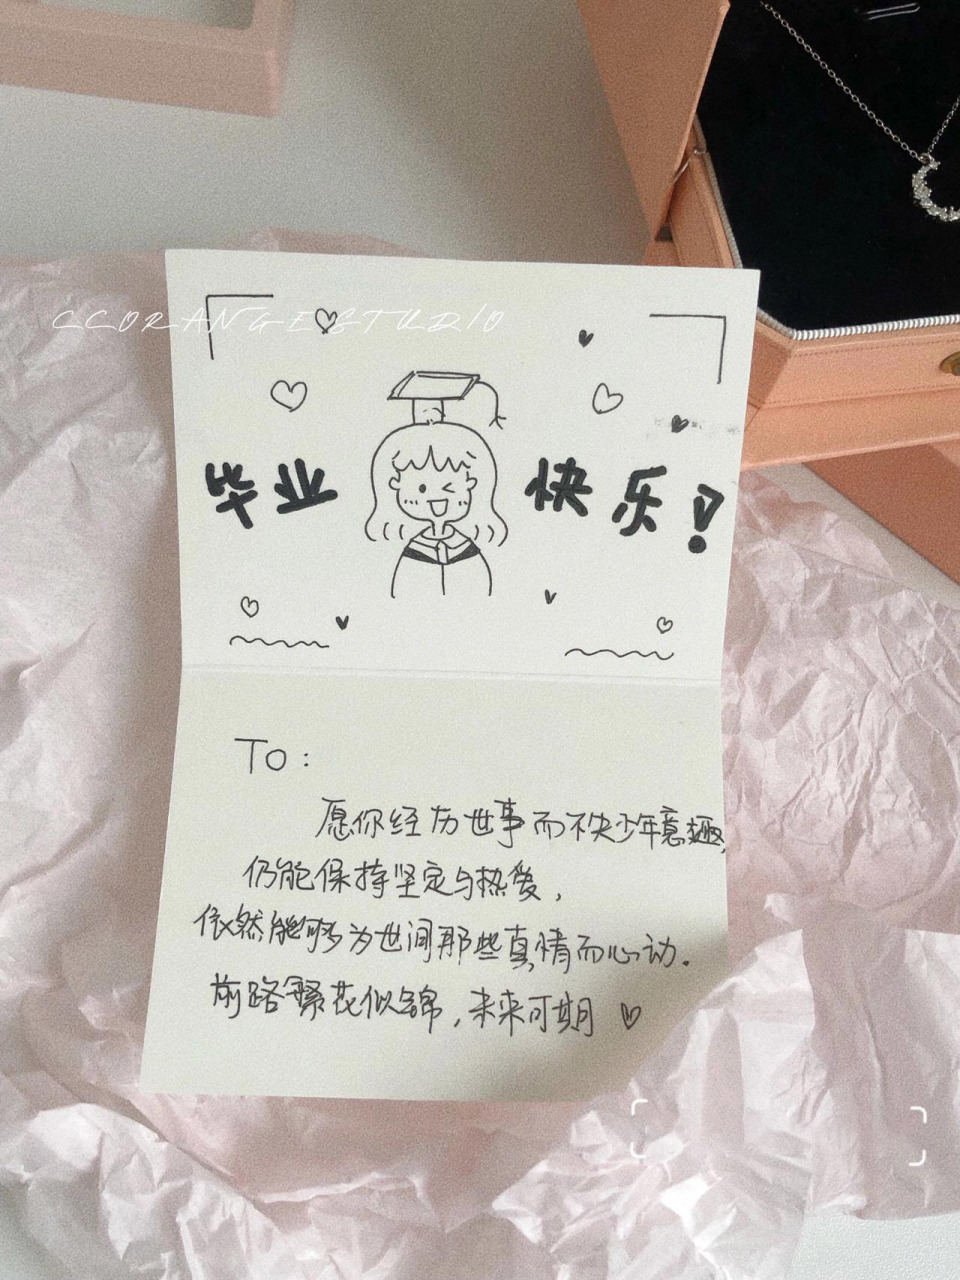 CCORANGESTUDIO
毕业 快乐!
To:
愿你经历世事而不失少年意趣,
仍能保持坚定与热爱,
依然能够为世间那些真情而心动.
前路繁花似锦,未来可期